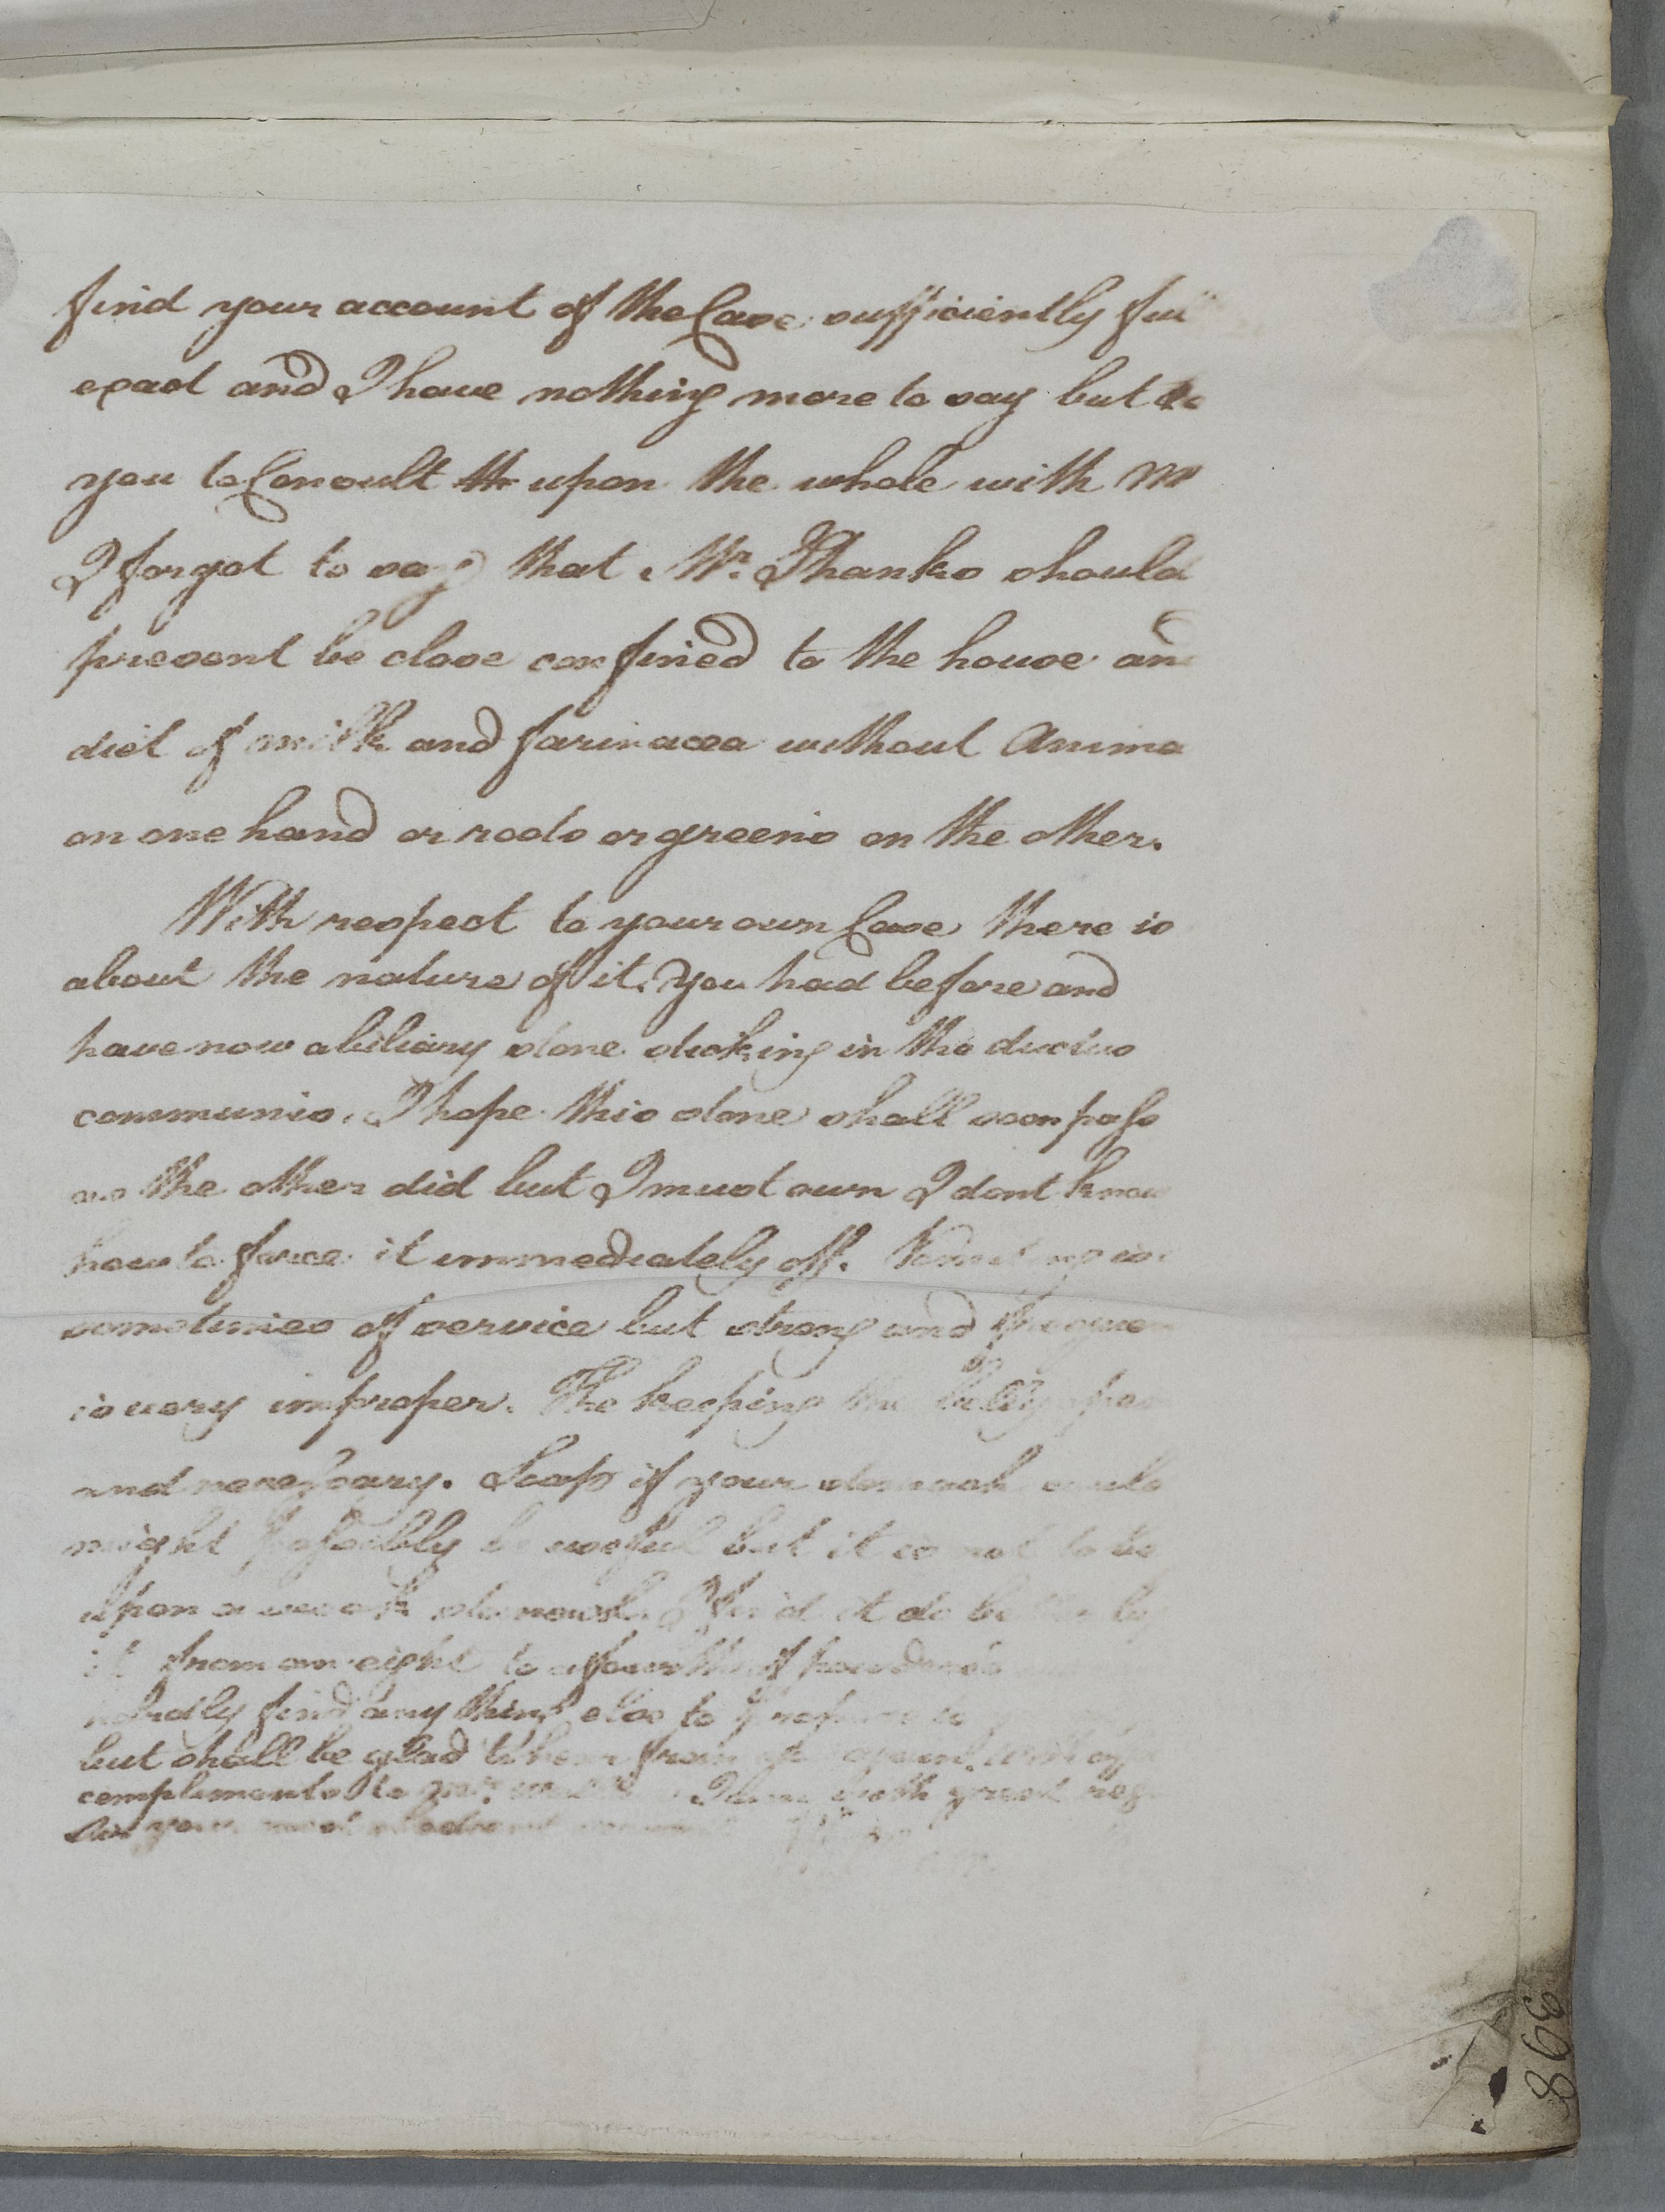 find your account of the Case sufficiently ful
exact and I have nothing more to say but
you to Consult th upon the whole with Mr
I forgot to say that Mr. Shanks should
present be close confined to the house and
diet of milk and farinacea without Anima
on one hand or roots or greens on the other.
With respect to your own Case there is
about the nature of it. You had before and
have now a biliary stone sticking in the ductus
communis. I hope this stone shall soon pass
as the other did but I must own I dont know
how to force it immediately off. Vomiting is
sometimes of service but strong and frequen
is very improper. The keeping the belly open
and necessary. Soap if your stomach
might possibly be useful but it is not to be
upon a weak stomach. I find it do better by
it from an eight to a fourth of
hardly find any thing else to propose to
but shall be glad to hear from you again. With
complements to Mrs. I am with great reg
Sir your most obedient
398